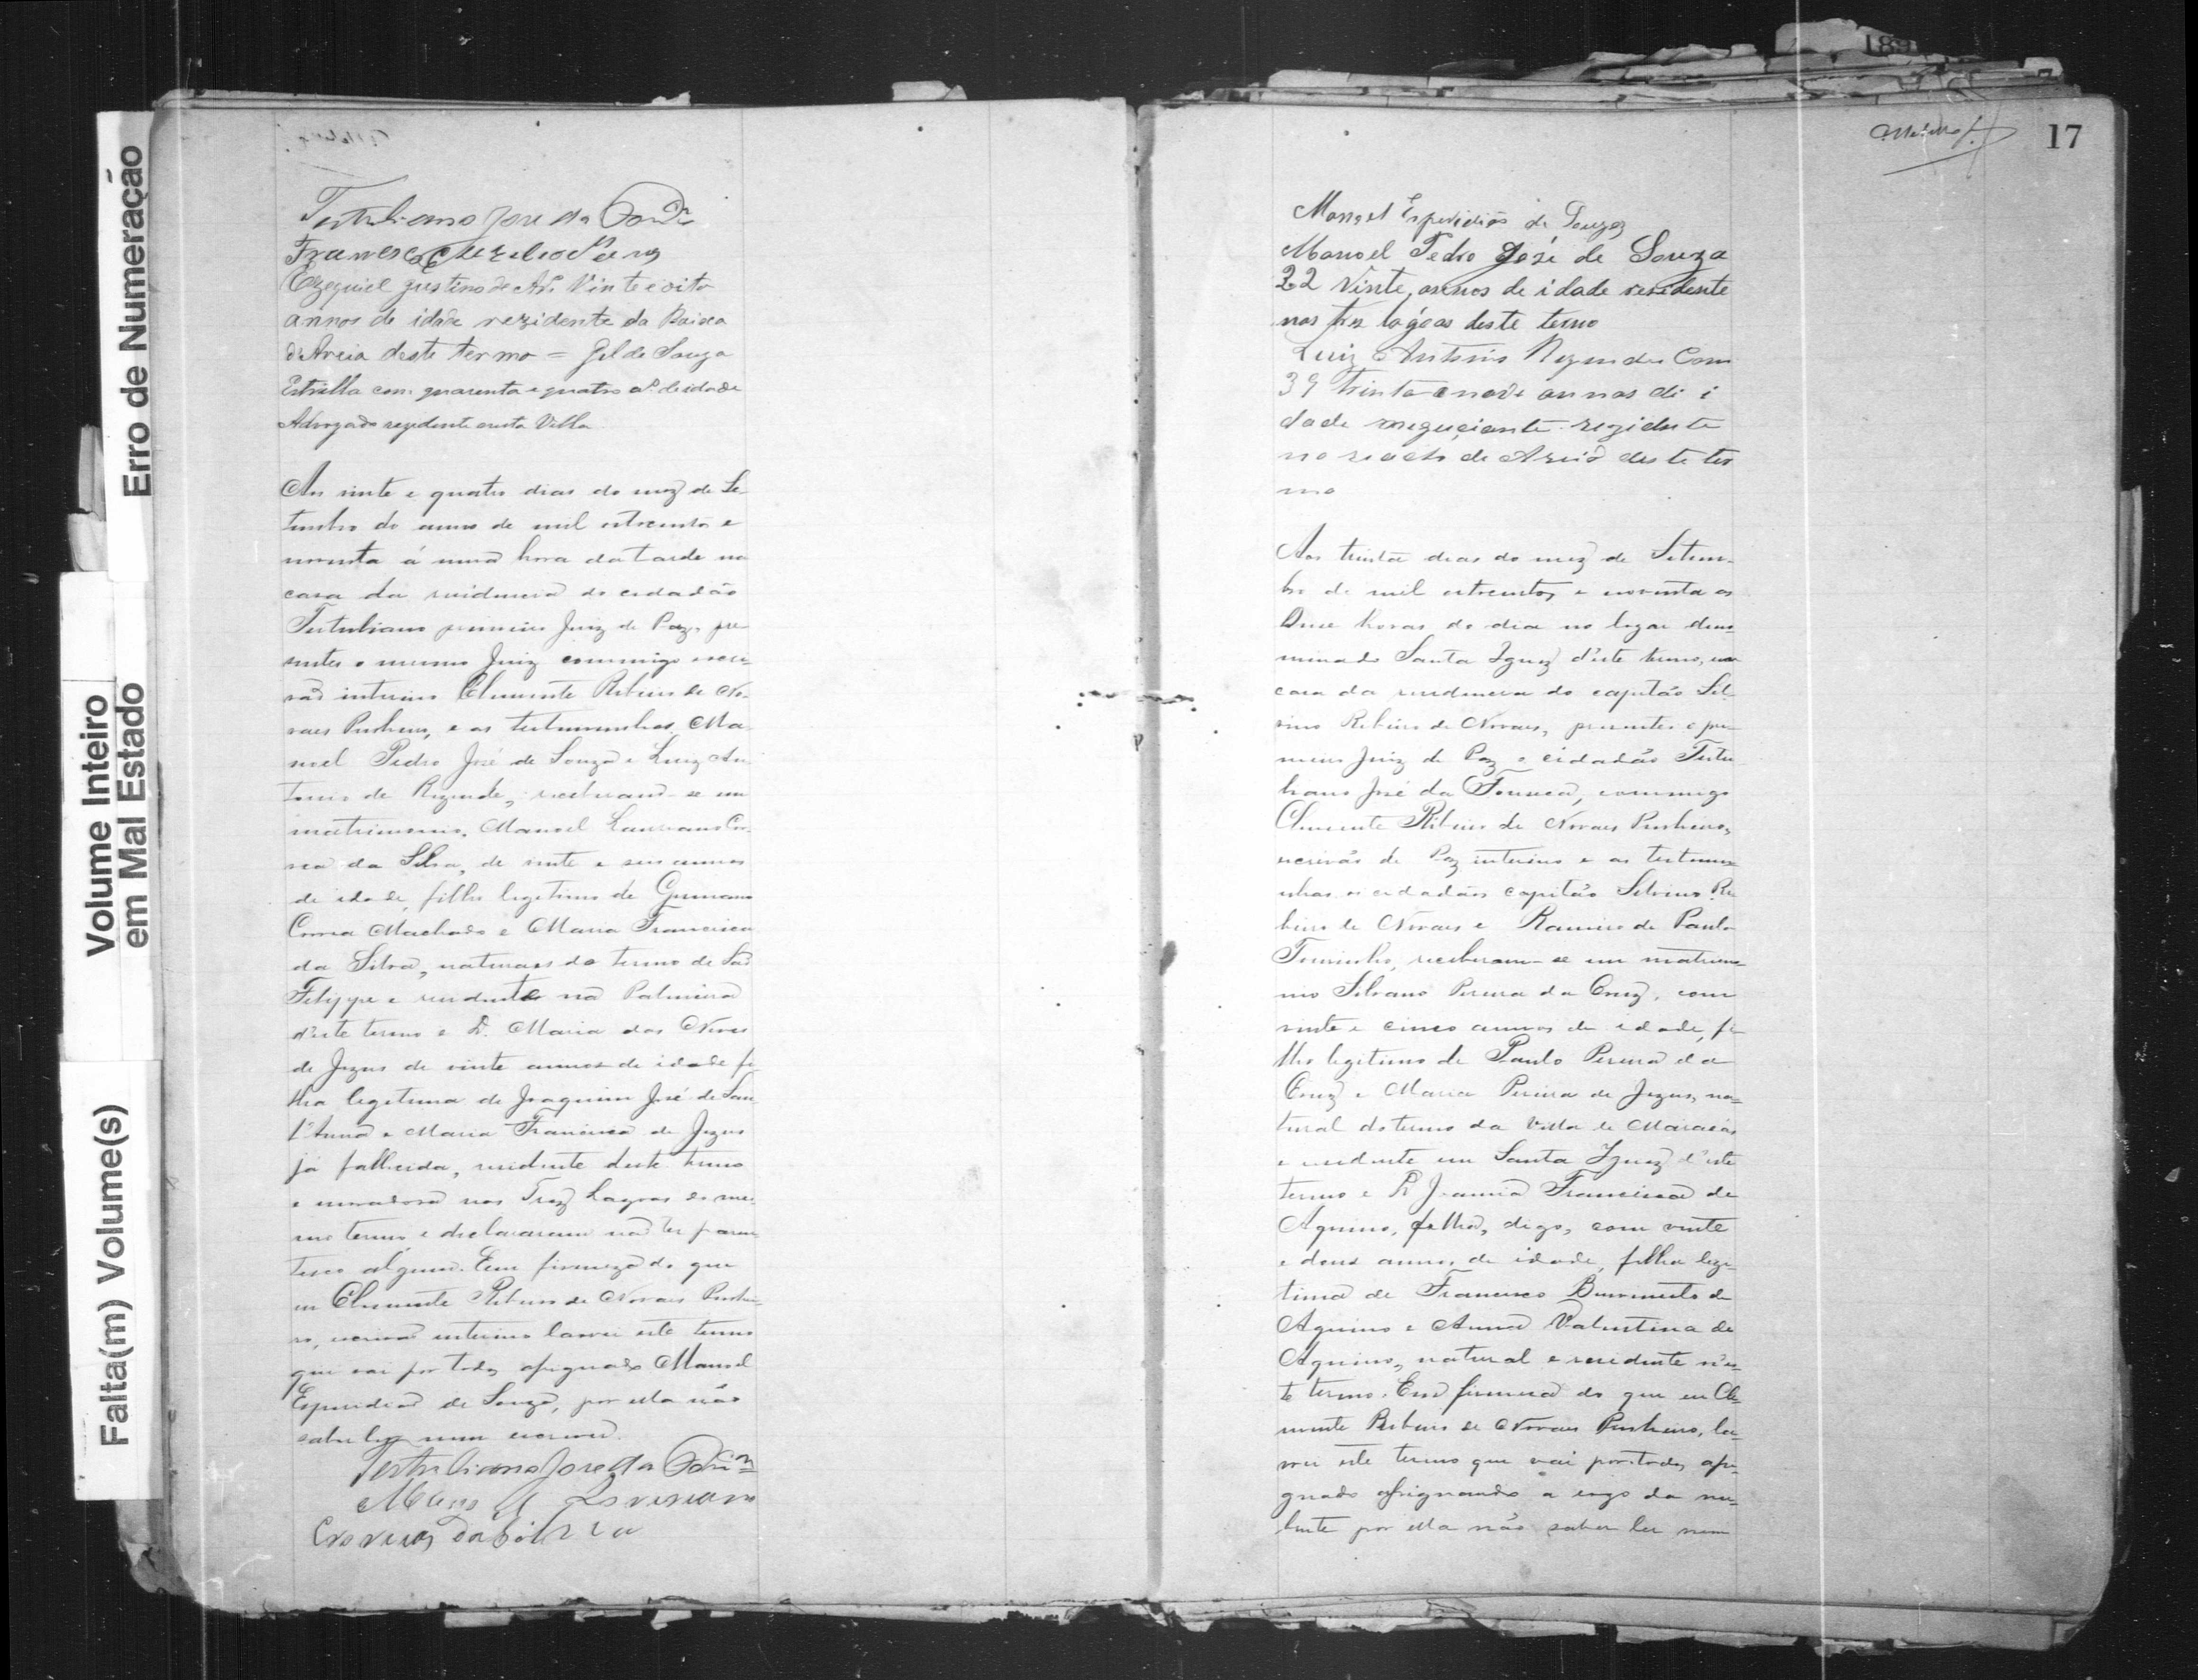 Erro de Numeração
Volume Inteiro
em Mal Estado
Falta(m) Volume(s)
Tertuliano Jose da Fonca
Ezequiel Justino de Vinte e oito
annos de idade rezidente da Baixa
d'Areia deste termo = Gil de Souza
Estrella com quarenta e quatro as. de idade
Advogado rezidente nesta Villa
Aos vinte e quatro dias do mez de Se-
tembro do anno de mil oitocentos e
noventa á uma hora da tarde na
casa da residencia do cidadão
Tertuliano primeiro Juiz de Paz, pre
sentes o mesmo Juiz commigo escri-
vão interino Clemente Ribeiro de No-
vaes Pinheiro, e as testemunhas Ma-
noel Pedro José de Souza e Luiz An
tonio de Rezende, receberam-se em
matrimonio, Manoel Lauriano Cor-
rea da Silva, de vinte e seis annos
de idade, filho legitimo de Germano
Correa Machado e Maria Francisca
da Silva, naturaes do termo de São
Felippe e residente na Palmeira
d'este termo e D. Maria das Neves
de Jezus de vinte annos de idade fi-
lha legitima de Joaquim José de San-
t'Anna e Maria Francisca de Jezus
já fallecida, residente deste termo
e moradora nas Trez Lagoas do mes-
mo termo e declararam não ter paren-
tesco algum. Em firmeza do que
eu Clemente Ribeiro de Novaes Pinhei-
ro, escrivão interino lavrei este termo
que vai por todos assignado Manoel
Esperidião de Souza, por ella não
saber ler nem escrever.
Tertuliano Jose da Fonca
Manoel
17
Manoel Esperidião de Souza
Manoel Pedro José de Souza
22 Vinte, annos de idade residente
nas tres lagôas deste termo
Luiz Antonio Rezende Com
39 trinta e nove annos de i
dade neguciante rezidente
no riacho de Areia deste ter
mo
Aos trinta dias do mez de Setem-
bro de mil oitocentos e noventa as
Onze horas do dia no lugar deno-
minado Santa Ignez d'este termo, em
casa da residencia do capitão Sil-
vino Ribeiro de Novaes, presentes o pri
meiro Juiz de Paz o cidadão Tertu
liano José da Fonseca, commigo
Clemente Ribeiro de Novaes Pinheiro,
escrivão de Paz interino e as testemu-
nhas os cidadãos capitão Silvino Ri
beiro de Novaes e Ramiro de Paula
Tourinho, receberam-se em matrimo-
nio Silvano Pereira da Cruz, com
vinte e cinco annos de idade, fi-
lho legitimo de Paulo Pereira da
Cruz e Maria Pereira de Jezus, na-
tural do termo da Villa de Maracás
e residente em Santa Ignez d'este
termo e D. Joanna Francisca de
Aquino, filha, digo, com vinte
e dous annos de idade, filha legi-
tima de Francisco de
Aquino e Anna Valentina de
Aquino, natural e residente n'es-
te termo. Em firmeza do que eu Cle-
mente Ribeiro de Novaes Pinheiro, la-
vrei este termo que vai por todos assi-
gnado assignando a rogo da nu-
bente por ella não saber ler nem